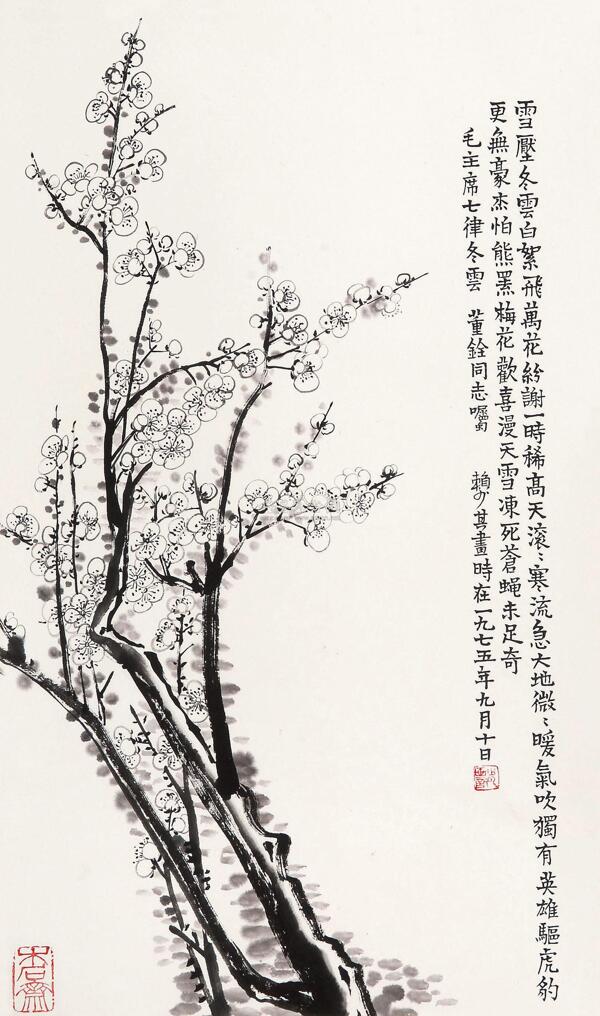 雪壓冬雲白絮飛萬花紛謝一時稀高天滾〻寒流急大地微〻暖氣吹獨有英雄驅虎豹
更無豪杰怕熊羆梅花歡喜漫天雪凍死蒼蝇未足奇
毛主席七律冬雲 董銓同志囑 賴少其畫時在一九七五年九月十日
木石齋